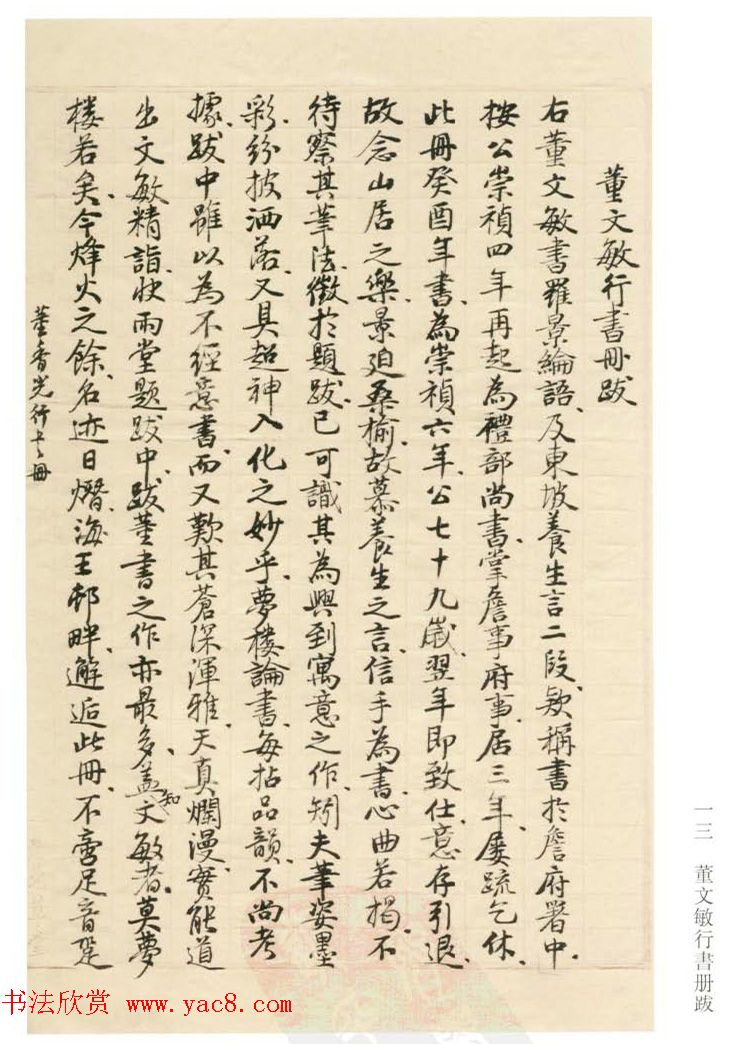 董文敏行書冊跋
右董文敏書羅景綸語、及東坡養生言二段、款稱書於詹府署中、
按公崇禎四年再起為禮部尚書、掌詹事府事、居三年、屢疏乞休、
此冊癸酉年書、為崇禎六年、公七十九歲、翌年即致仕、意存引退、
故念山居之樂、景迫桑榆、故慕養生之言、信手為書、心曲若揭、不
待察其筆法、徵於題跋、已可識其為興到寓意之作、矧夫筆姿墨
彩、紛披洒落、又具超神入化之妙乎、夢樓論書、每拈品韻、不尚考
據、跋中雖以為不經意書、而又歎其蒼深渾雅、天真爛漫、實能道
出文敏精詣、快雨堂題跋中、跋董書之作亦最多、蓋知文敏者、莫夢
樓若矣、今烽火之餘、名迹日熸、海王邨畔、邂逅此冊、不啻足音跫
董香光行書冊
一三 董文敏行書册跋
书法欣赏 www.yac8.com